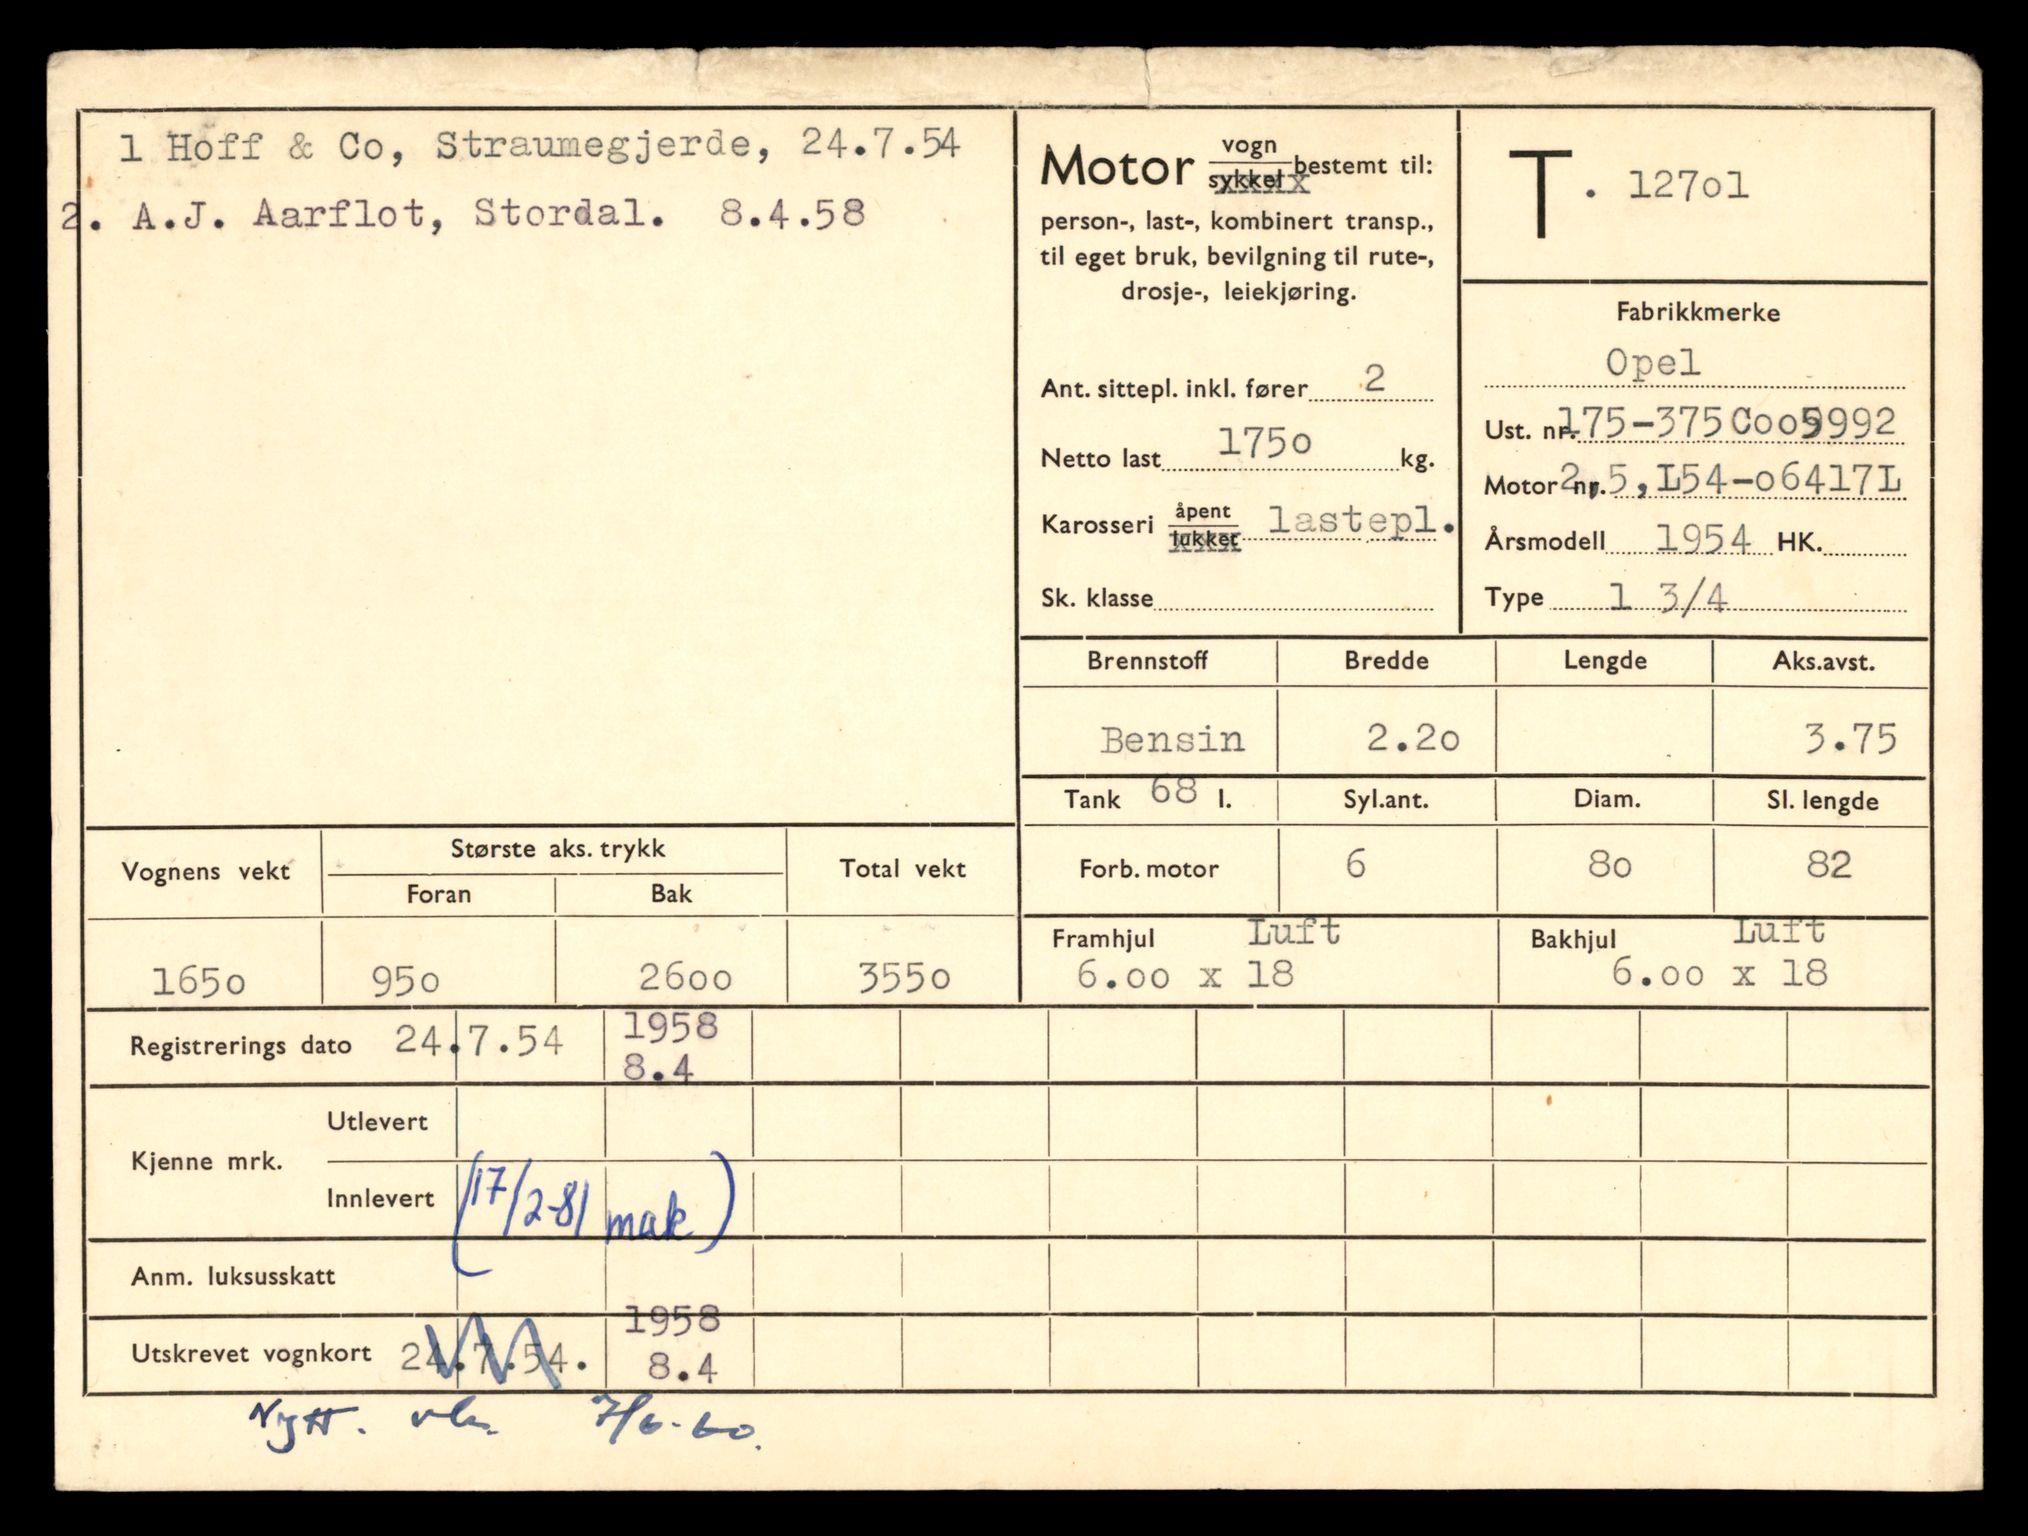 1 Hoff & Co, Straumegjerde, 24.7.54
2. A.J. Aarflot, Stordal. 8.4.58
Motor vogn
sykkel bestemt til:
person-, last-, kombinert transp.,
til eget bruk, bevilgning til rute-,
drosje-, leiekjøring.
Ant. sittepl. inkl. fører 2
Netto last 1750 kg.
Karosseri åpent
lukket lastepl.
Sk. klasse
T. 12701
Fabrikkmerke
Opel
Ust. nr. 175-375Coo9992
Motor nr. 2,5,L54-o6417L
Årsmodell 1954 HK.
Type 1 3/4
Brennstoff Bredde Lengde Aks.avst.
Bensin 2.20 3.75
Tank 68 l. Syl.ant. Diam. Sl. lengde
Forb. motor 6 80 82
Framhjul Luft Bakhjul Luft
6.00 x 18 6.00 x 18
Vognens vekt Største aks. trykk Total vekt
Foran Bak
1650 950 2600 3550
Registrerings dato 24.7.54 1958
8.4
Kjenne mrk. Utlevert
Innlevert (17/2-81 mak)
Anm. luksusskatt
Utskrevet vognkort 24.7.54. 1958
8.4
Nytt. vk. 7/6-60.